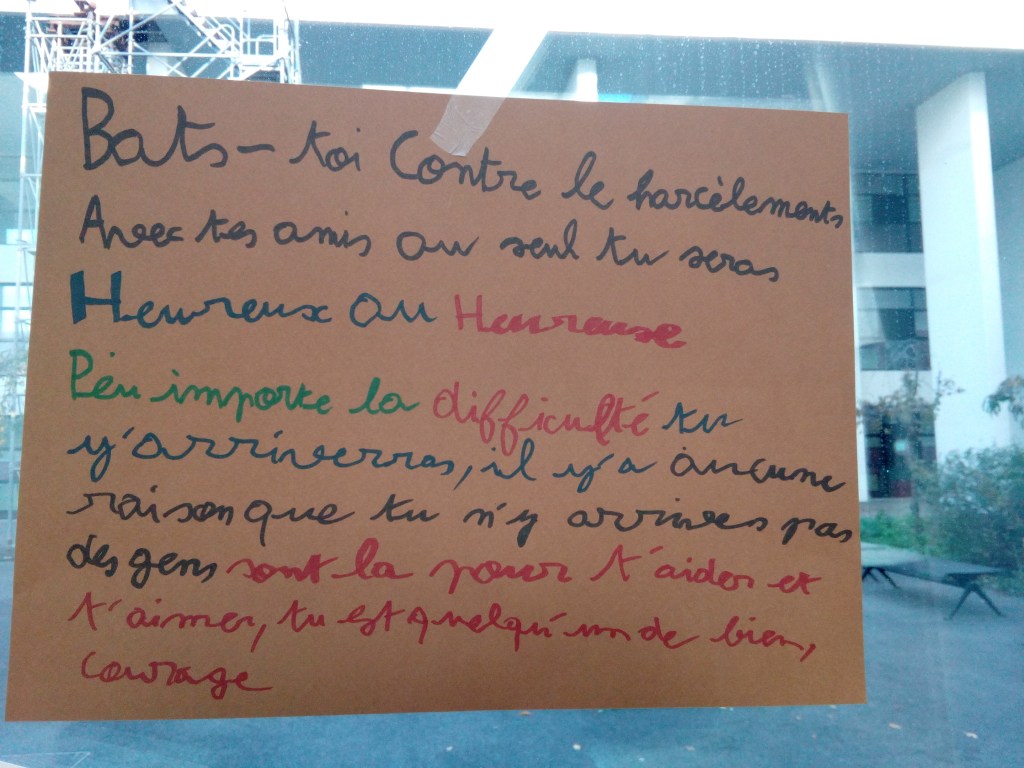 Bats-toi Contre le harcèlements
Avec tes amis ou seul tu seras
Heureux ou Heureuse
Peu importe la difficulté tu
y'arriverras, il y'a aucune
raison que tu n'y arrives pas
des gens sont la pour t'aider et
t'aimer, tu est quelqu'un de bien,
courage